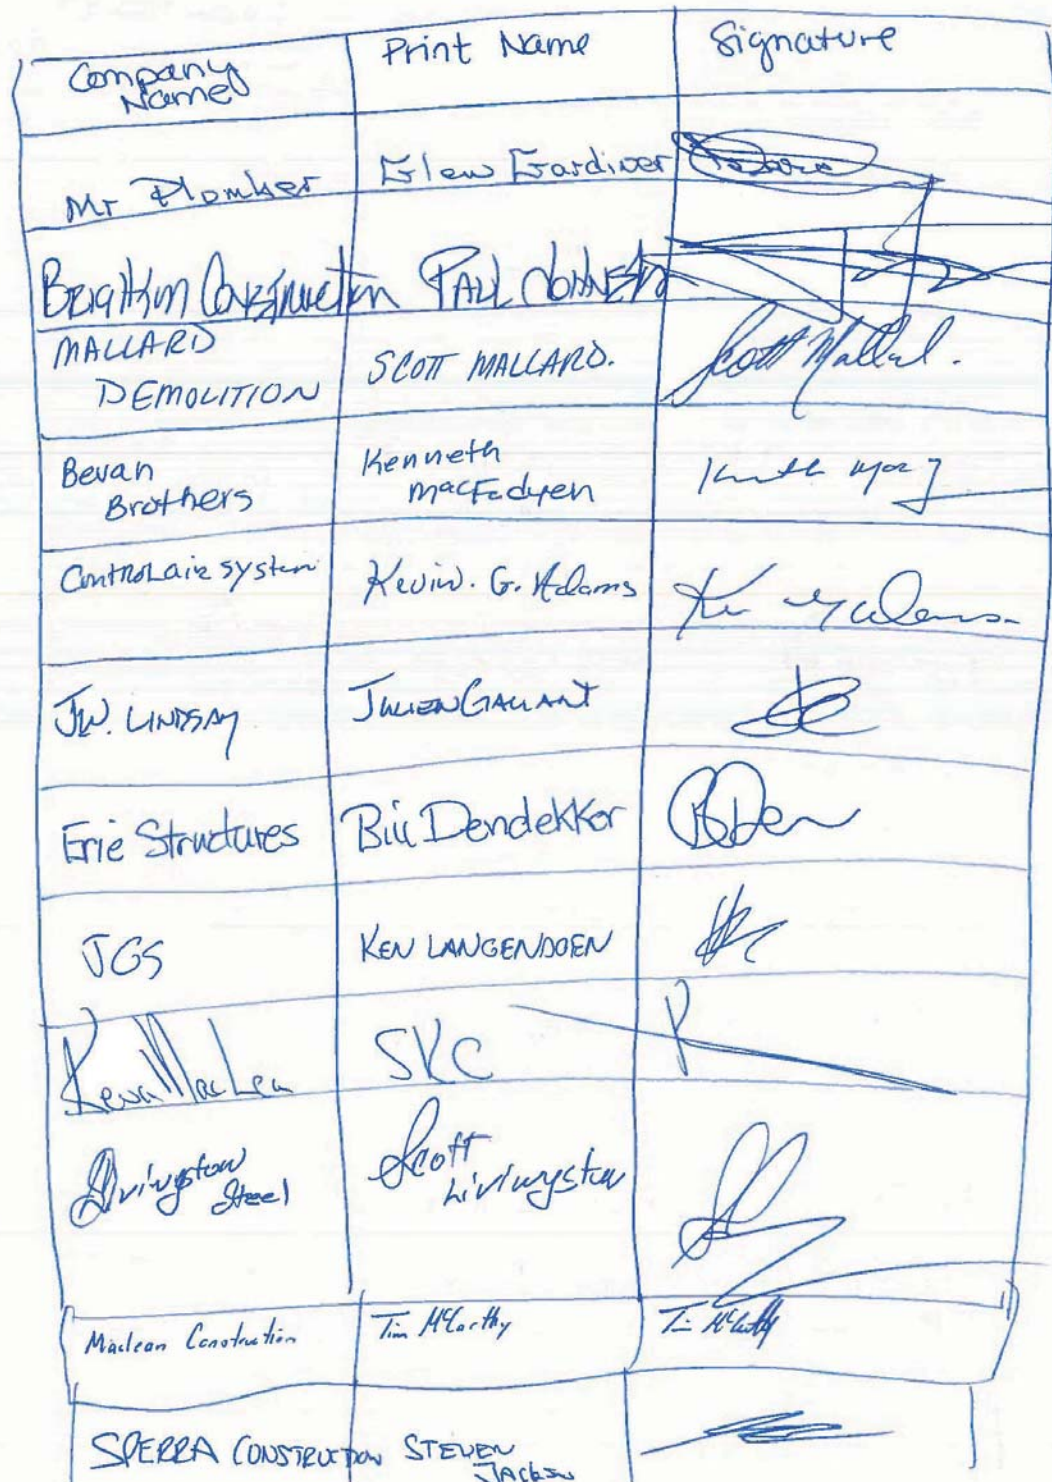 Company Name Print Name Signature
Mr Plomber Glew Gardiner
Brighton Construction PAUL
MALLARD SCOTT MALLARD. Scott Mallard.
DEMOLITION
Bevan Kenneth
Brothers MacFadyen
Controlair system Kevin. G. Adams
J.W. LINDSAY JULIEN GALLANT
Erie Structures Bill Dendekker
JGS KEN LANGENDOEN
Kevin MacLean SKC
Livingston Scott
Steel Livingston
Maclean Construction Tim McCarthy Tim McCarthy
SPERRA CONSTRUCTION STEVEN
JACKSON